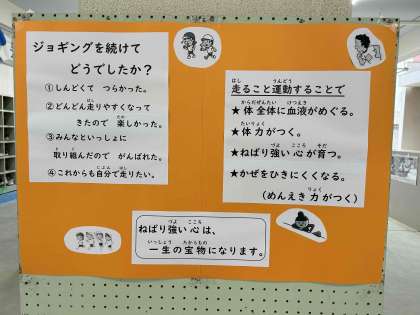 ジョギングを続けて
どうでしたか?
①しんどくて つらかった。
②どんどん走りやすくなって
きたので 楽しかった。
③みんなといっしょに
取り組んだので がんばれた。
④これからも自分で走りたい。
走ること運動することで
★体全体に血液がめぐる。
★体力がつく。
★ねばり強い心が育つ。
★かぜをひきにくくなる。
(めんえき力がつく)
ねばり強い心は、
一生の宝物になります。